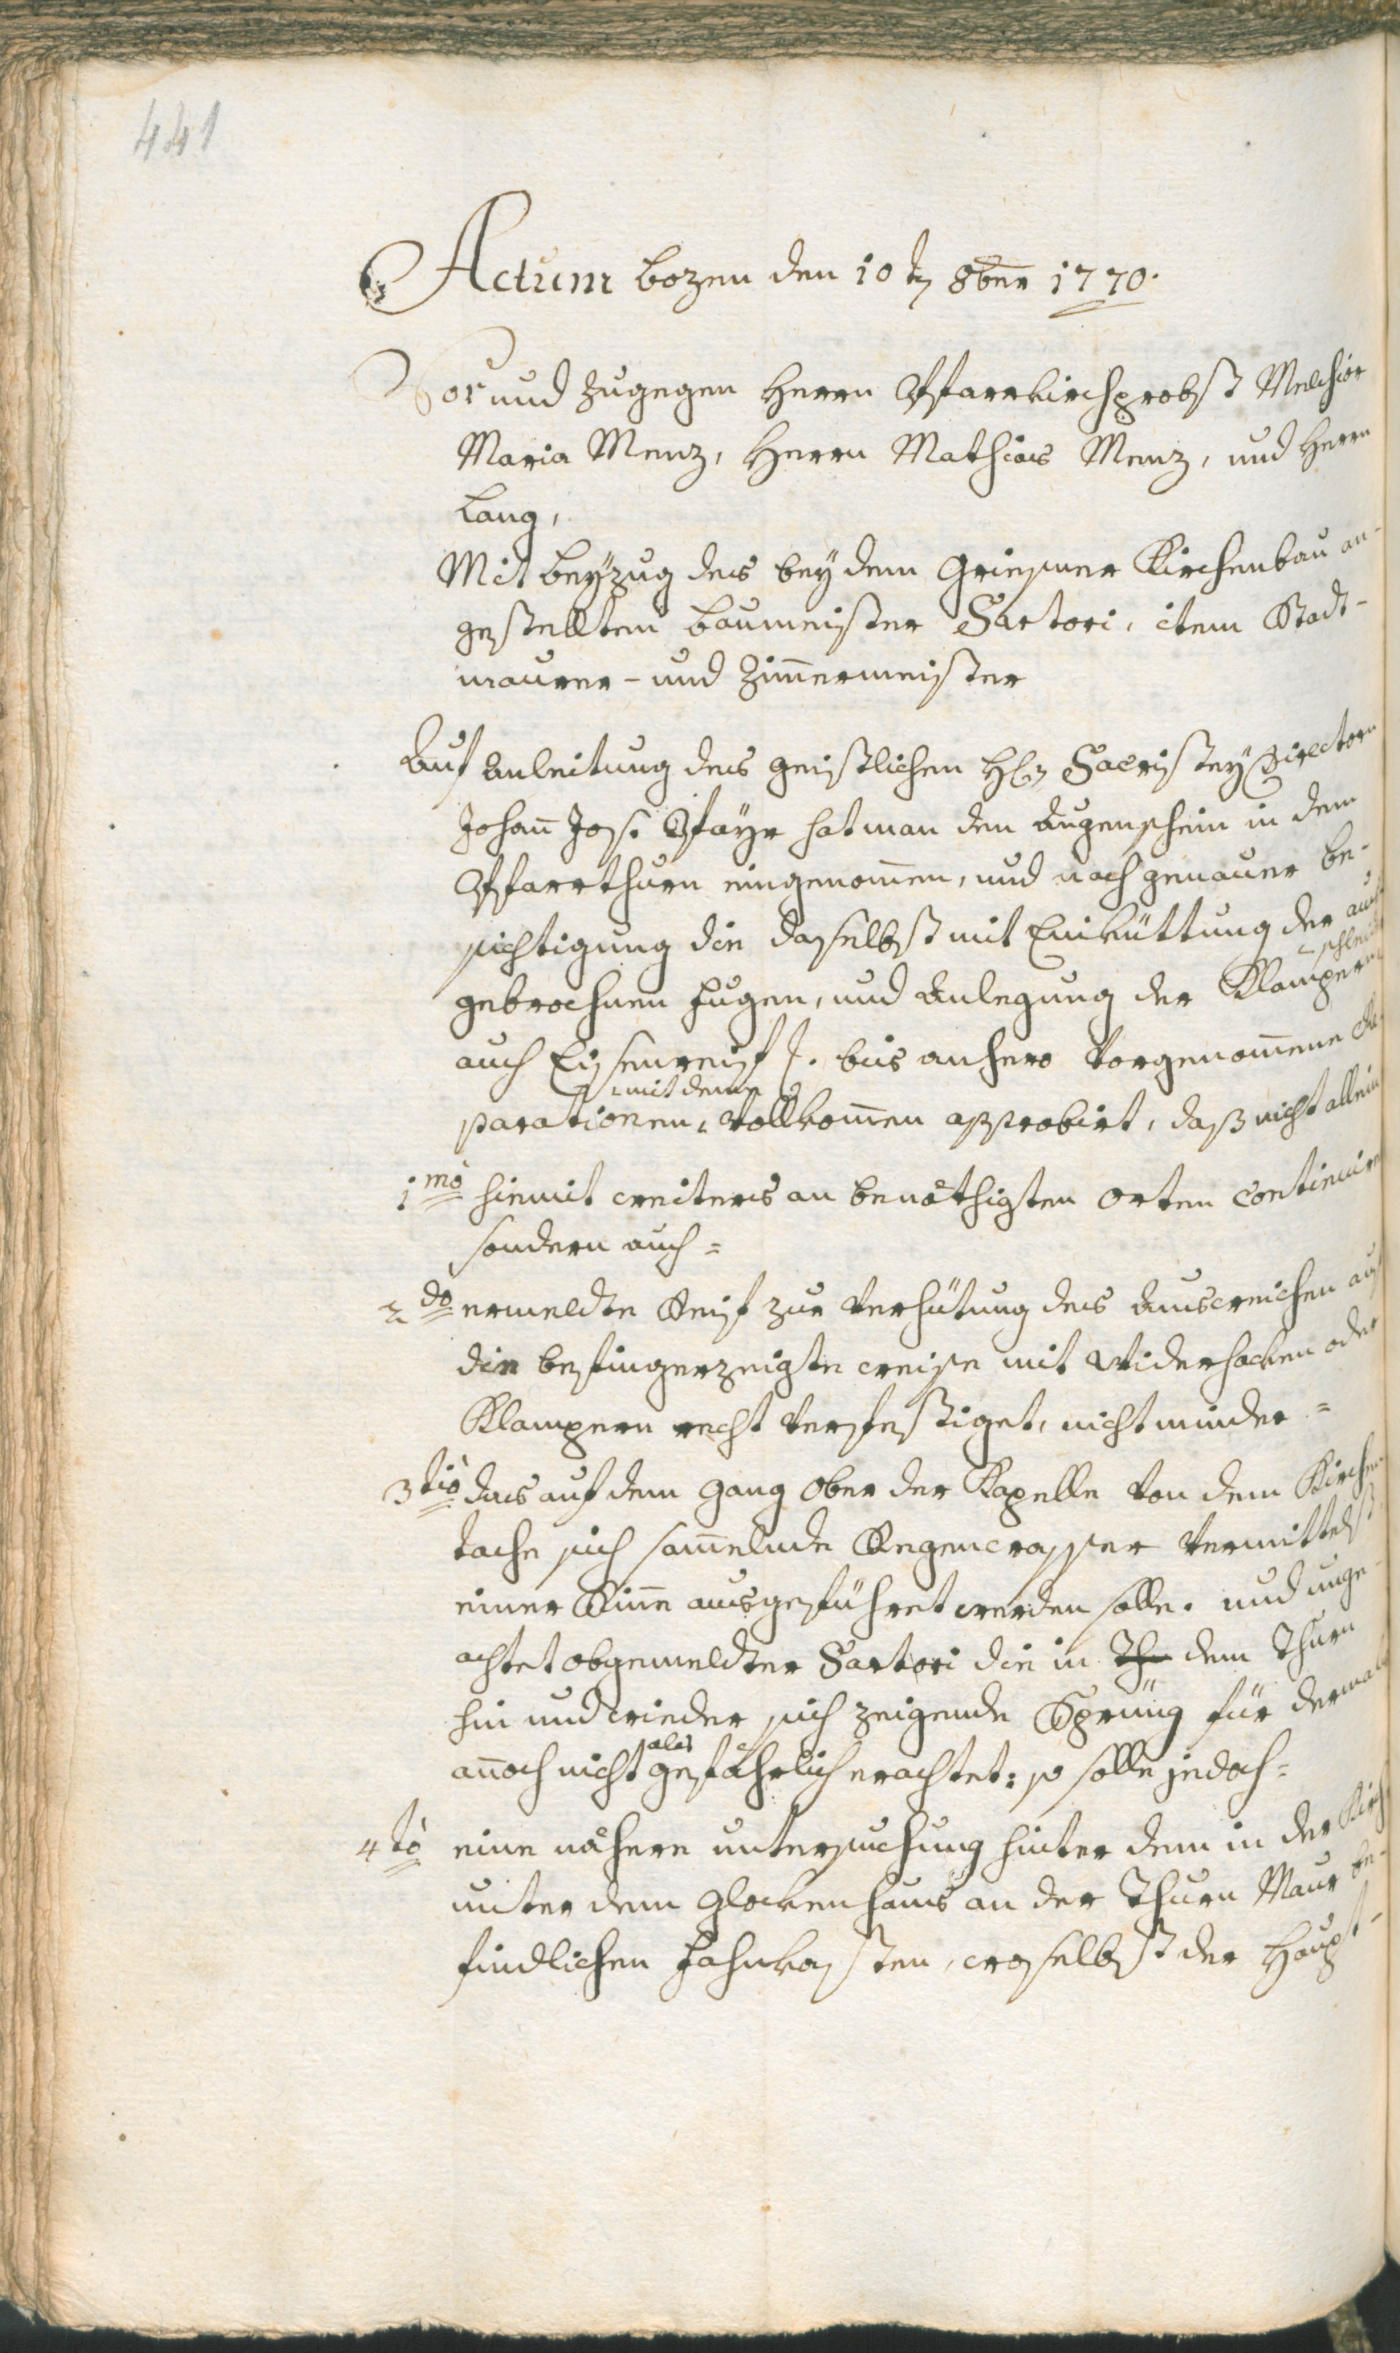 441
Actum Bozen den 10t 8ber 1770.
Vor und zugegen Herrn Pfarrkirchprobst Melchior
Maria Menz, Herrn Mathias Menz, und Herrn
Lang,
Mit beyzug des bey dem Griesner Kirchenbau an-
gestellten Baumeister Sartori, item Stadt-
maurer- und Zimmermeister
Auf Anleitung des geistlichen H Sacristey Directorn
Johann Jos: Mayr hat man den Augenschein in dem
Pfarrthurn eingenommen, und nach genauer be-
sichtigung die daselbst mit Einküttung der aus-
gebrochnen Fugen, und Anlegung der Klampern
auch Eisenreif bis anhero vorgenommene Re-
mit deme
parationen, vollkommen approbirt, daß nicht allein
1mo hiemit weiters an benöthigten orten
sondern auch =
2do ermeldte Reif zur Verhütung des Ausweichen auf
die befingerzeigte weise mit Widerhacken oder
Klampern recht verfestiget, nicht minder =
3tio das auf dem Gang ober der Kapelle von dem Kirchen
tache sich sammelnde Regenwasser vermittelst
einer Rinn ausgeführet werden solle. und unge
achtet obgemeldter Sartori die in Th dem Thurn
hin und wieder sich zeigende Sprüng für dermals
annoch nicht als gefährlich erachtet: so solle jedoch =
4to eine nähere untersuchung hinter dem in der Kirch
unter dem Glockenhaus an der Thurn Maur be-
findlichen Fahnkasten, woselbst der Haupt-